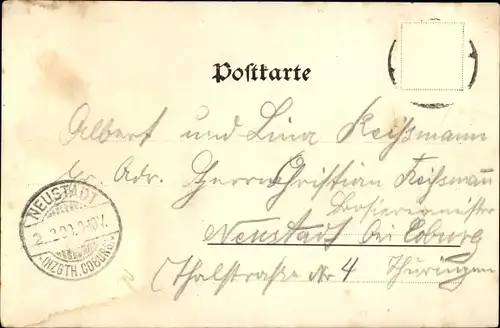 Postkarte
Albert und Lina Reißmann
pr Adr. Herrn Christian Reißmann
Neustadt bei Coburg
Thalstraße Nr 4 Thüringen
NEUSTADT
(HZGTH. COBURG.)